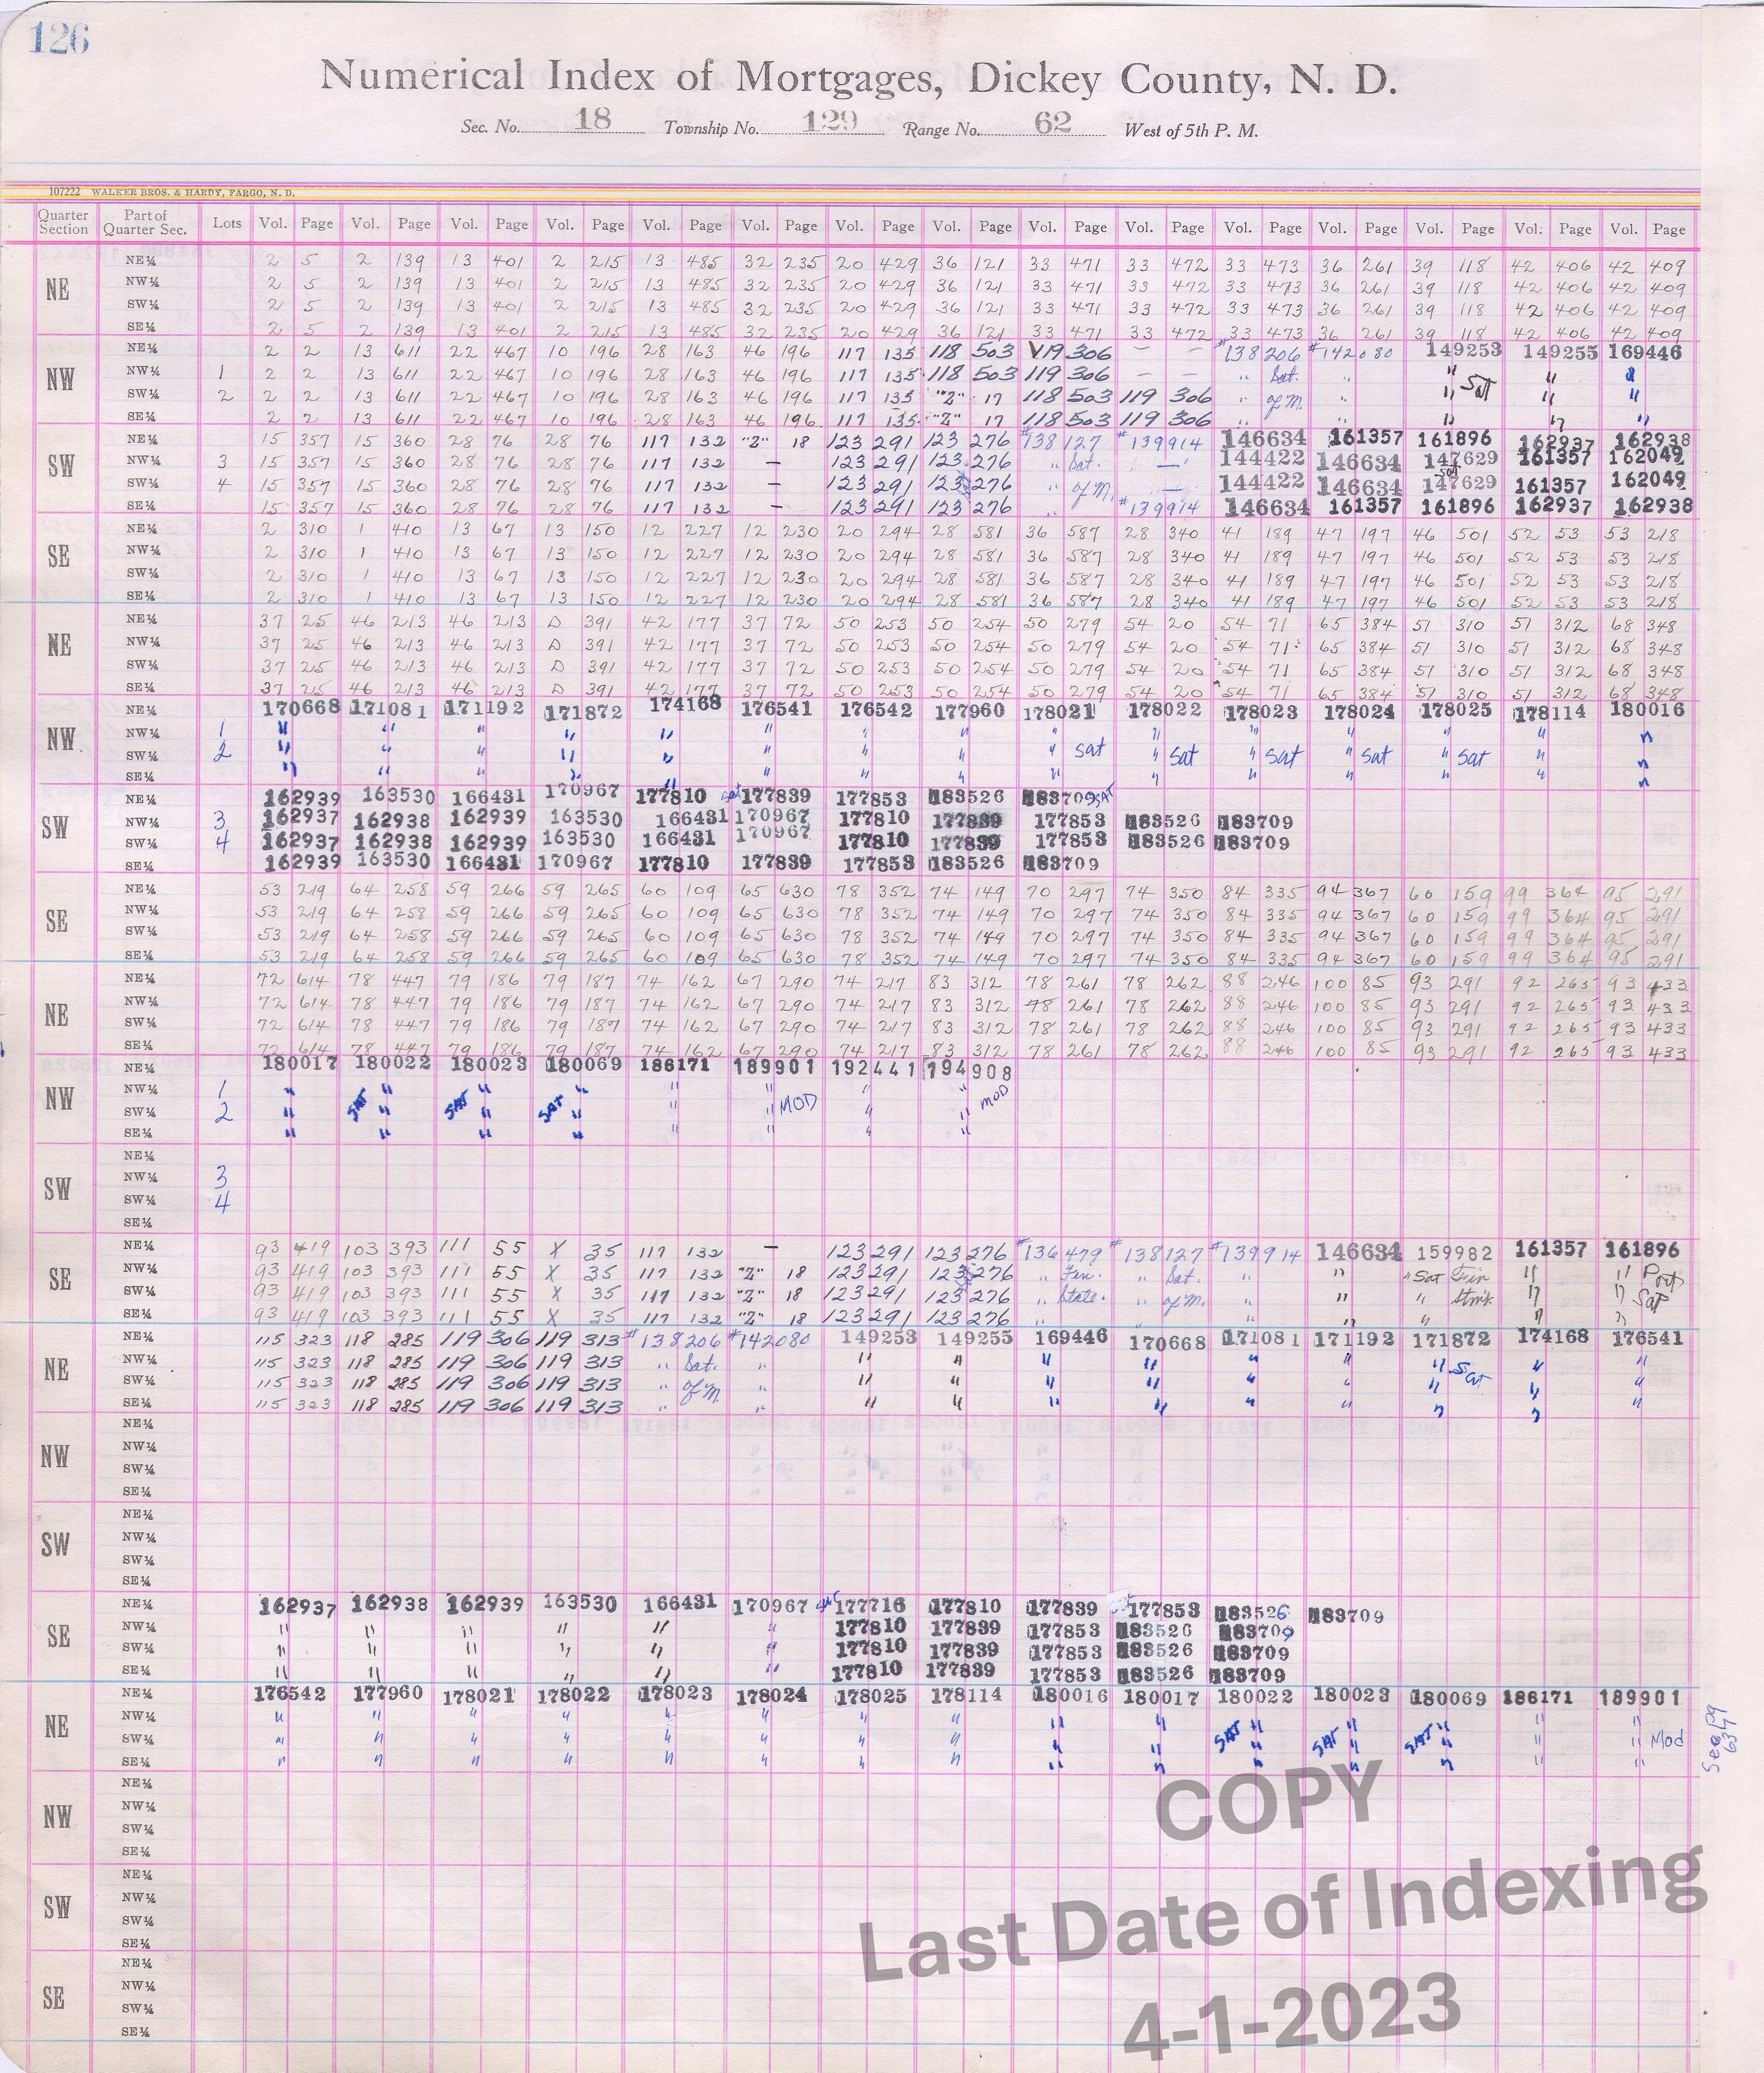 126
Numerical Index of Mortgages, Dickey County, N. D.
Sec. No. 18 Township No. 129 Range No. 62 West of 5th P. M.
107222 WALKER BROS. & HARDY, FARGO, N. D.
Quarter Section Part of Quarter Sec. Lots Vol. Page Vol. Page Vol. Page Vol. Page Vol. Page Vol. Page Vol. Page Vol. Page Vol. Page Vol. Page Vol. Page Vol. Page Vol. Page Vol. Page Vol. Page
NE
NE¼ 2 5 2 139 13 401 2 215 13 485 32 235 20 429 36 121 33 471 33 472 33 473 36 261 39 118 42 406 42 409
NW¼ 2 5 2 139 13 401 2 215 13 485 32 235 20 429 36 121 33 471 33 472 33 473 36 261 39 118 42 406 42 409
SW¼ 2 5 2 139 13 401 2 215 13 485 32 235 20 429 36 121 33 471 33 472 33 473 36 261 39 118 42 406 42 409
SE¼ 2 5 2 139 13 401 2 215 13 485 32 235 20 429 36 121 33 471 33 472 33 473 36 261 39 118 42 406 42 409
NW
NE¼ 2 2 13 611 22 467 10 196 28 163 46 196 117 135 118 503 119 306 — — #138206 #142080 149253 149255 169446
NW¼ 1 2 2 13 611 22 467 10 196 28 163 46 196 117 135 118 503 119 306 — — " Sat. " " Sat " "
SW¼ 2 2 2 13 611 22 467 10 196 28 163 46 196 117 135 "Z" 17 118 503 119 306 " of M. " " " "
SE¼ 2 2 13 611 22 467 10 196 28 163 46 196 117 135 "Z" 17 118 503 119 306 " " " " "
SW
NE¼ 15 357 15 360 28 76 28 76 117 132 "Z" 18 123 291 123 276 #138127 #139914 146634 161357 161896 162937 162938
NW¼ 3 15 357 15 360 28 76 28 76 117 132 — 123 291 123 276 " Sat. — 144422 146634 147629 161357 162049
SW¼ 4 15 357 15 360 28 76 28 76 117 132 — 123 291 123 276 " of M. — 144422 146634 sat 147629 161357 162049
SE¼ 15 357 15 360 28 76 28 76 117 132 — 123 291 123 276 " #139914 146634 161357 161896 162937 162938
SE
NE¼ 2 310 1 410 13 67 13 150 12 227 12 230 20 294 28 581 36 587 28 340 41 189 47 197 46 501 52 53 53 218
NW¼ 2 310 1 410 13 67 13 150 12 227 12 230 20 294 28 581 36 587 28 340 41 189 47 197 46 501 52 53 53 218
SW¼ 2 310 1 410 13 67 13 150 12 227 12 230 20 294 28 581 36 587 28 340 41 189 47 197 46 501 52 53 53 218
SE¼ 2 310 1 410 13 67 13 150 12 227 12 230 20 294 28 581 36 587 28 340 41 189 47 197 46 501 52 53 53 218
NE
NE¼ 37 25 46 213 46 213 D 391 42 177 37 72 50 253 50 254 50 279 54 20 54 71 65 384 51 310 51 312 68 348
NW¼ 37 25 46 213 46 213 D 391 42 177 37 72 50 253 50 254 50 279 54 20 54 71 65 384 51 310 51 312 68 348
SW¼ 37 25 46 213 46 213 D 391 42 177 37 72 50 253 50 254 50 279 54 20 54 71 65 384 51 310 51 312 68 348
SE¼ 37 25 46 213 46 213 D 391 42 177 37 72 50 253 50 254 50 279 54 20 54 71 65 384 51 310 51 312 68 348
NW
NE¼ 170668 171081 171192 171872 174168 176541 176542 177960 178021 178022 178023 178024 178025 178114 180016
NW¼ 1 " " " " " " " " " " " " " " "
SW¼ 2 " " " " " " " " " Sat " Sat " Sat " Sat " Sat " "
SE¼ " " " " " " " " " " " " " " "
SW
NE¼ 162939 163530 166431 170967 177810 Sat 177839 177853 183526 183709 SAT
NW¼ 3 162937 162938 162939 163530 166431 170967 177810 177839 177853 183526 183709
SW¼ 4 162937 162938 162939 163530 166431 170967 177810 177839 177853 183526 183709
SE¼ 162939 163530 166431 170967 177810 177839 177853 183526 183709
SE
NE¼ 53 219 64 258 59 266 59 265 60 109 65 630 78 352 74 149 70 297 74 350 84 335 94 367 60 159 99 364 95 291
NW¼ 53 219 64 258 59 266 59 265 60 109 65 630 78 352 74 149 70 297 74 350 84 335 94 367 60 159 99 364 95 291
SW¼ 53 219 64 258 59 266 59 265 60 109 65 630 78 352 74 149 70 297 74 350 84 335 94 367 60 159 99 364 95 291
SE¼ 53 219 64 258 59 266 59 265 60 109 65 630 78 352 74 149 70 297 74 350 84 335 94 367 60 159 99 364 95 291
NE
NE¼ 72 614 78 447 79 186 79 187 74 162 67 290 74 217 83 312 78 261 78 262 88 246 100 85 93 291 92 265 93 433
NW¼ 72 614 78 447 79 186 79 187 74 162 67 290 74 217 83 312 78 261 78 262 88 246 100 85 93 291 92 265 93 433
SW¼ 72 614 78 447 79 186 79 187 74 162 67 290 74 217 83 312 78 261 78 262 88 246 100 85 93 291 92 265 93 433
SE¼ 72 614 78 447 79 186 79 187 74 162 67 290 74 217 83 312 78 261 78 262 88 246 100 85 93 291 92 265 93 433
NW
NE¼ 180017 180022 180023 180069 186171 189901 192441 194908
NW¼ 1 " " " " " " " "
SW¼ 2 " SAT " SAT " SAT " " " MOD " " MOD
SE¼ " " " " " " " "
SW
NE¼
NW¼ 3
SW¼ 4
SE¼
SE
NE¼ 93 419 103 393 111 55 X 35 117 132 — 123 291 123 276 #136479 #138127 #139914 146634 159982 161357 161896
NW¼ 93 419 103 393 111 55 X 35 117 132 "Z" 18 123 291 123 276 " Fin. " Sat. " " " Sat Fin " " Part
SW¼ 93 419 103 393 111 55 X 35 117 132 "Z" 18 123 291 123 276 " State. " of M. " " " Stmt. " " Sat
SE¼ 93 419 103 393 111 55 X 35 117 132 "Z" 18 123 291 123 276 " " " " " " "
NE
NE¼ 115 323 118 285 119 306 119 313 #138206 #142080 149253 149255 169446 170668 171081 171192 171872 174168 176541
NW¼ 115 323 118 285 119 306 119 313 " Sat. " " " " " " " " Sat " "
SW¼ 115 323 118 285 119 306 119 313 " of M. " " " " " " " " " "
SE¼ 115 323 118 285 119 306 119 313 " " " " " " " " " " "
NW
NE¼
NW¼
SW¼
SE¼
SW
NE¼
NW¼
SW¼
SE¼
SE
NE¼ 162937 162938 162939 163530 166431 170967 177716 177810 177839 177853 183526 183709
NW¼ " " " " " " 177810 177839 177853 183526 183709
SW¼ " " " " " " 177810 177839 177853 183526 183709
SE¼ " " " " " " 177810 177839 177853 183526 183709
NE
NE¼ 176542 177960 178021 178022 178023 178024 178025 178114 180016 180017 180022 180023 180069 186171 189901
NW¼ " " " " " " " " " " " " " " "
SW¼ " " " " " " " " " " SAT " SAT " SAT " " " Mod
SE¼ " " " " " " " " " " " " " " "
NW
NE¼
NW¼
SW¼
SE¼
SW
NE¼
NW¼
SW¼
SE¼
SE
NE¼
NW¼
SW¼
SE¼
COPY
Last Date of Indexing
4-1-2023